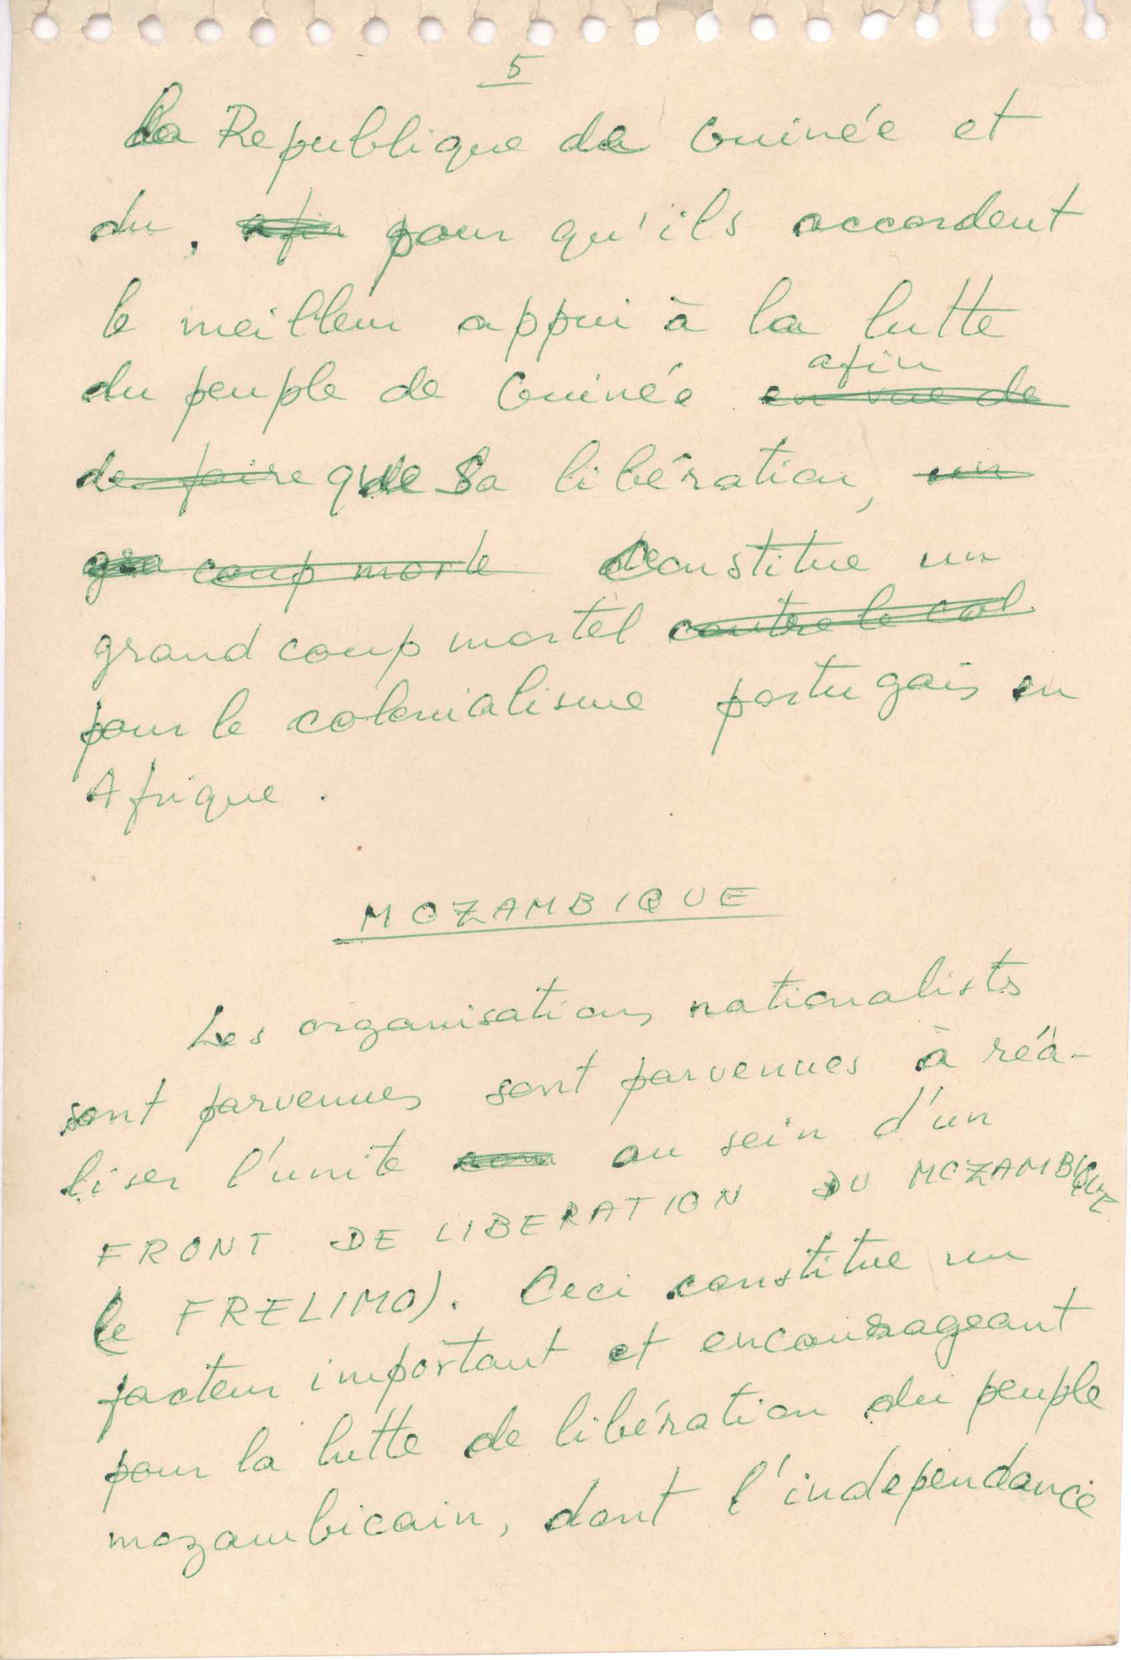 5
la Republique de Guinée et
du, afin pour qu'ils accordent
le meilleur appui à la lutte
afin
du peuple de Guinée en vue de
de faire que Sa libération, un
coup morte constitue un
grand coup mortel contre le col
pour le colonialisme portugais en
Afrique.
MOZAMBIQUE
Les organisations nationalists
sont parvenues sont parvenues à réa-
liser l'unite au sein d'un
FRONT DE LIBERATION DU MOZAMBIQUE
(le FRELIMO). Ceci constitue un
facteur important et encourageant
pour la lutte de libération du peuple
mozambicain, dont l'independance